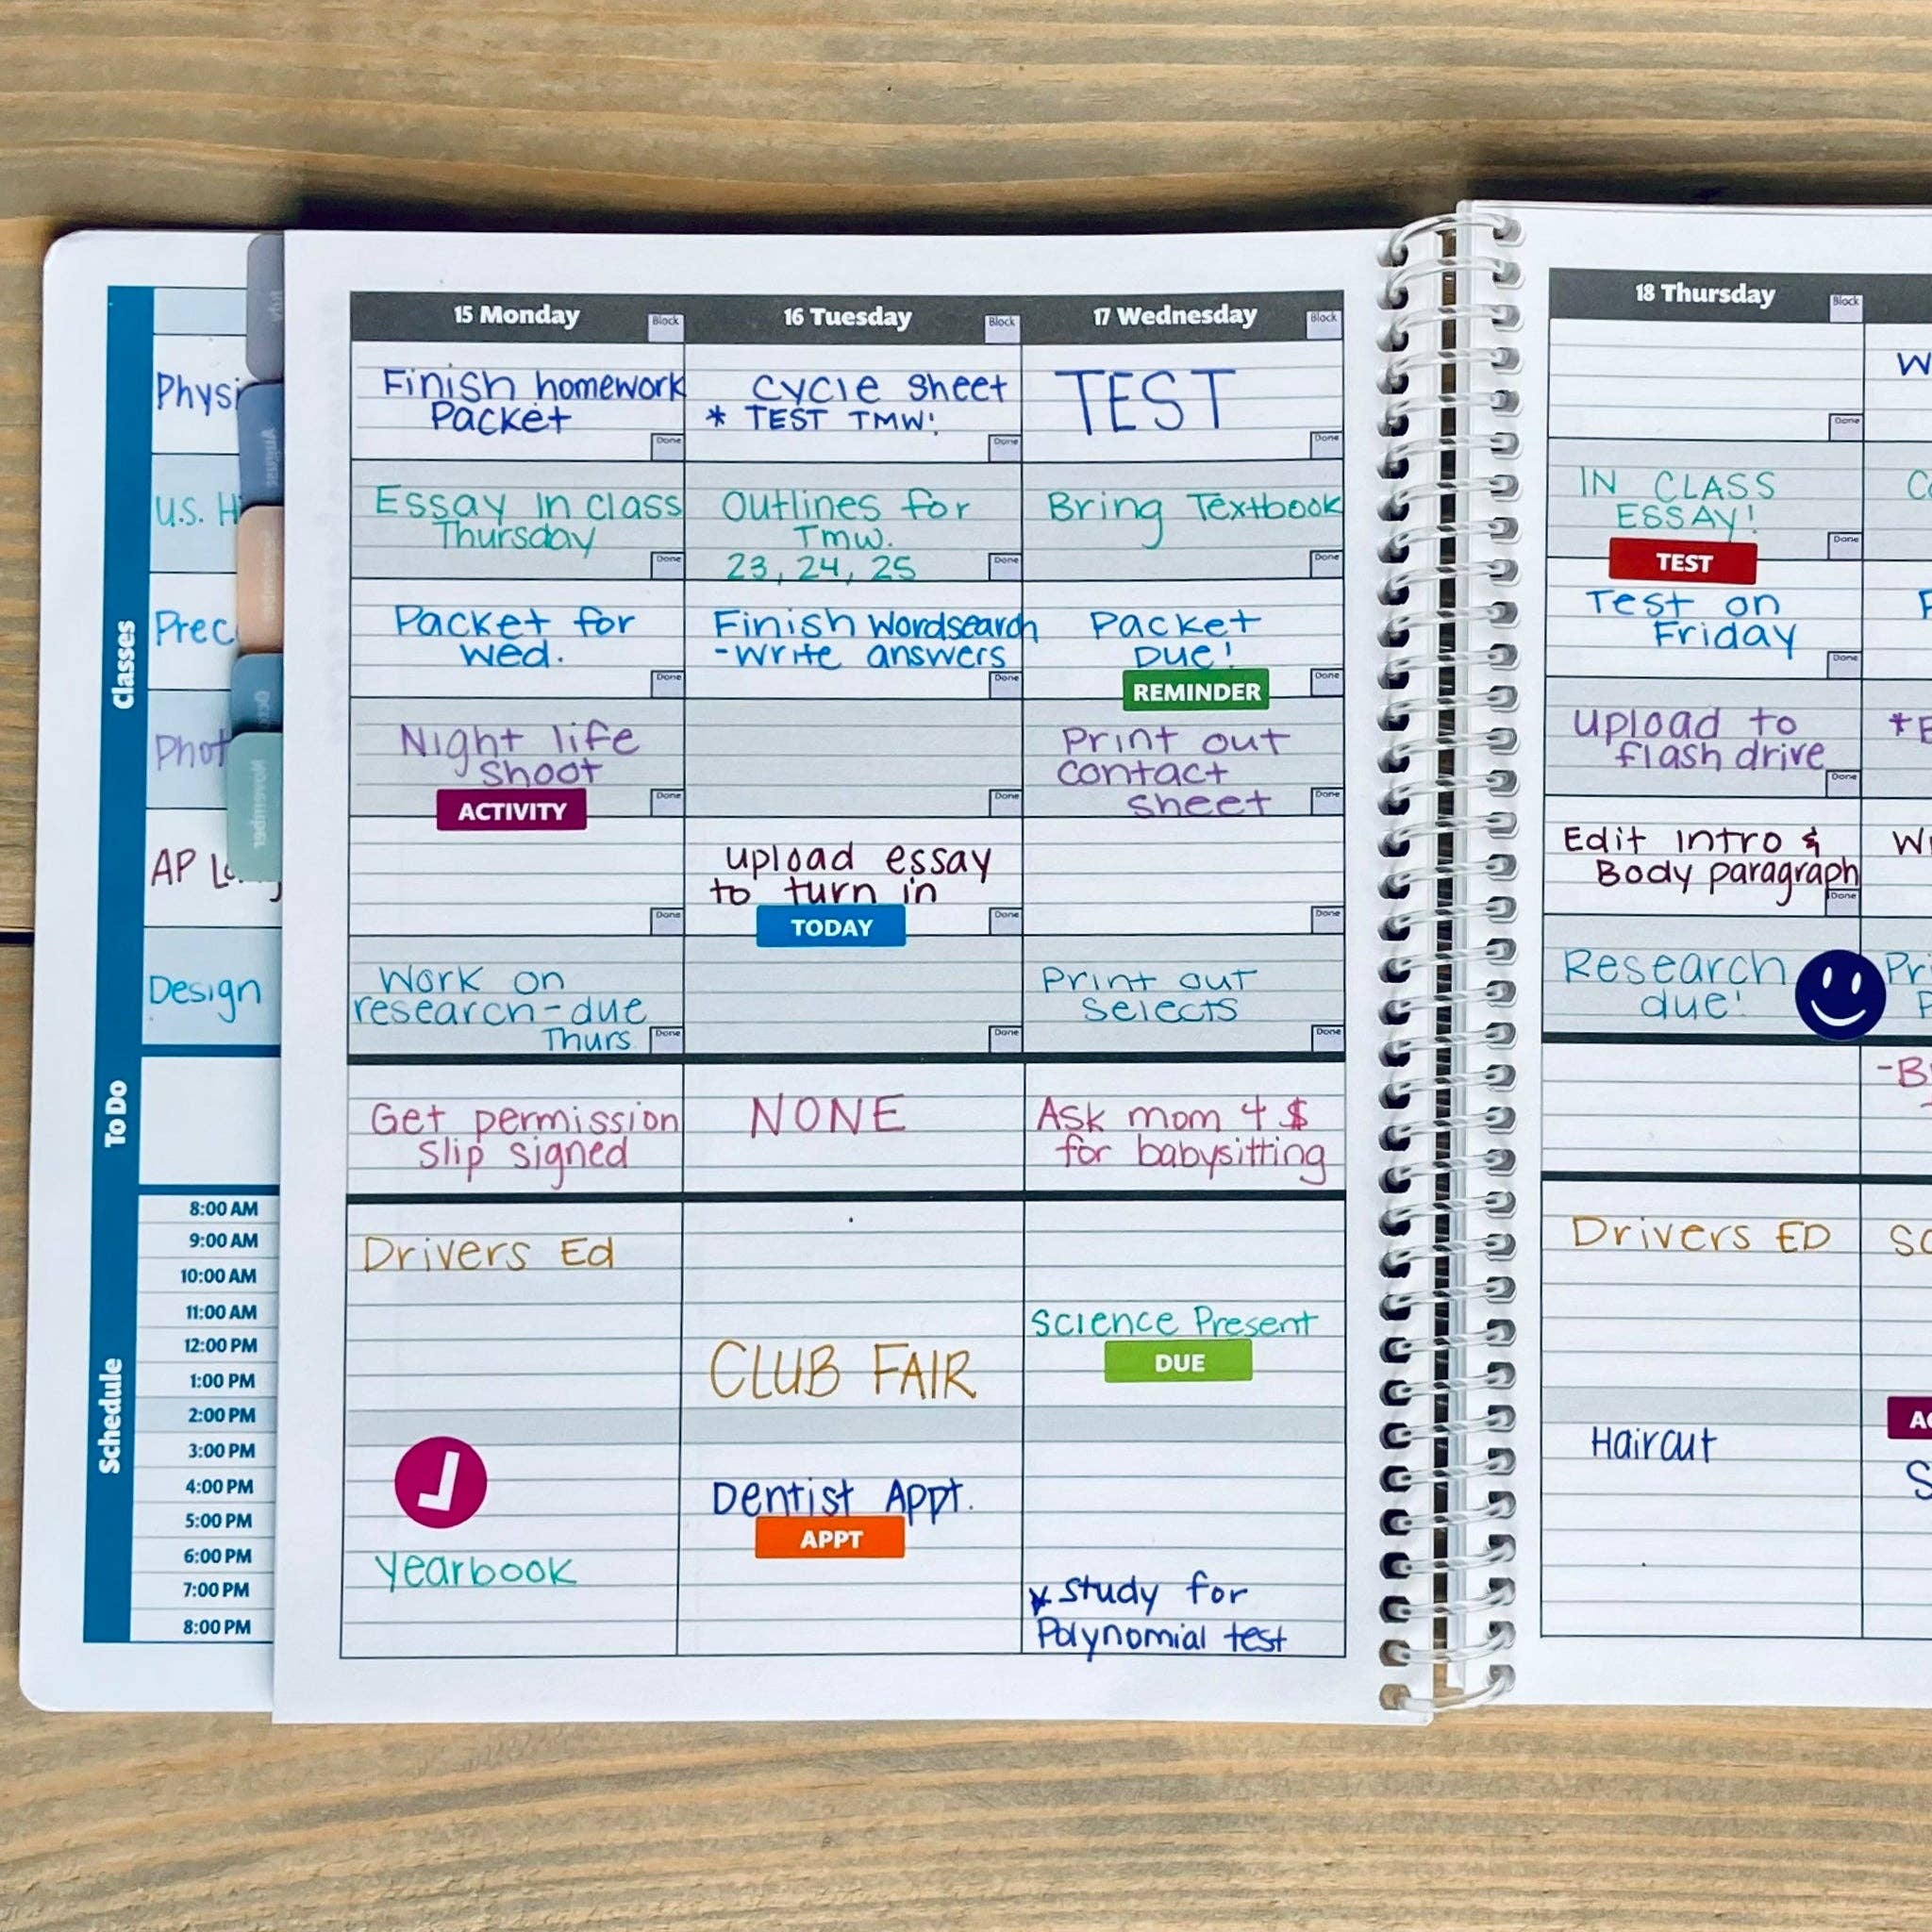 15 Monday
Block
16 Tuesday
Block
17 Wednesday
Block
18 Thursday
Block
Classes
Finish homework
Packet
Done
Cycle sheet
* TEST TMW!
Done
TEST
Done
Done
U.S.
Essay in class
Thursday
Done
Outlines for
Tmw.
23, 24, 25
Done
Bring Textbook
Done
IN CLASS
ESSAY!
Done
TEST
Packet for
wed.
Done
Finish wordsearch
-write answers
Done
Packet
Due!
Done
REMINDER
Test on
Friday
Done
Night life
shoot
Done
ACTIVITY
Done
Print out
contact
sheet
Done
upload to
flash drive
Done
AP
Done
upload essay
to turn in
Done
TODAY
Done
Edit Intro &
Body paragraph
Done
Design
Work on
research-due
Thurs
Done
Done
Print out
Selects
Done
Research
due!
November
To Do
Get permission
slip signed
NONE
Ask mom 4 $
for babysitting
Schedule
8:00 AM
9:00 AM
10:00 AM
11:00 AM
12:00 PM
1:00 PM
2:00 PM
3:00 PM
4:00 PM
5:00 PM
6:00 PM
7:00 PM
8:00 PM
Drivers Ed
yearbook
CLUB FAIR
Dentist Appt.
APPT
Science Present
DUE
* Study for
Polynomial test
Drivers ED
Haircut